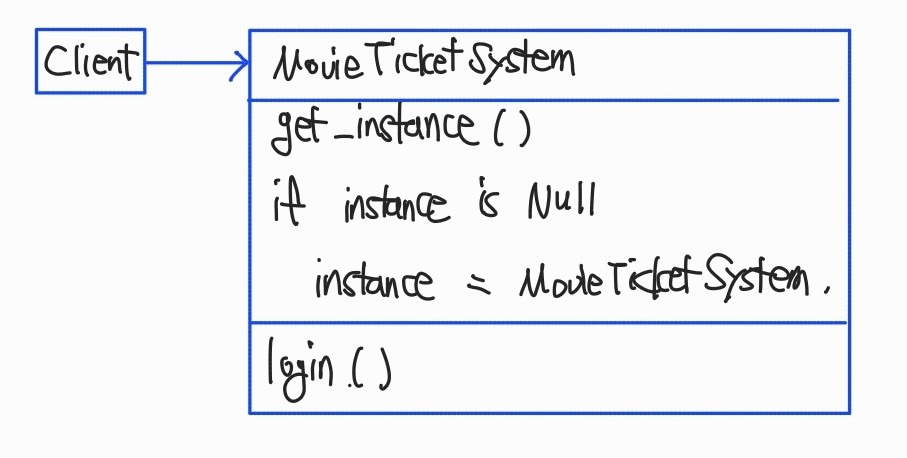 Client
MovieTicketSystem
get_instance()
if instance is Null
instance = MovieTicketSystem.
login()